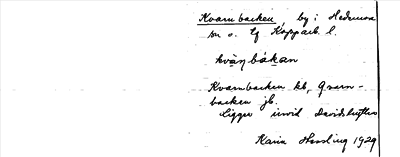 Kvarnbacken, by i Hedemora
sn o. tg Kopparb. l.
kvà̄ṇbákan
Kvarnbacken kb, Qvarn-
backen jb.
Ligger invid Davidshyttan
Karin Hessling 1929